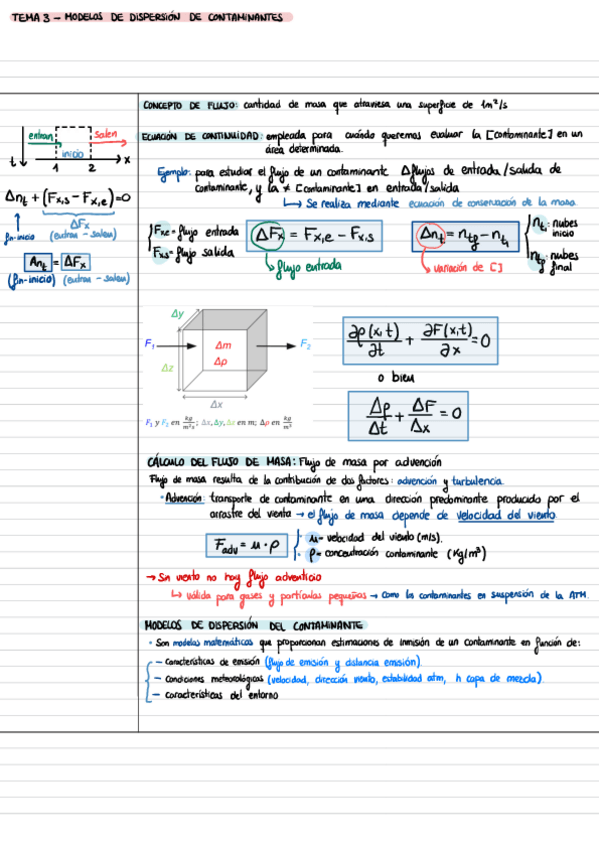 TEMA 3 - MODELOS DE DISPERSIÓN DE CONTAMINANTES
CONCEPTO DE FLUJO: cantidad de masa que atraviesa una superficie de 1m²/s
ECUACIÓN DE CONTINUIDAD: empleada para cuándo queremos evaluar la [contaminante] en un
área determinada.
Ejemplo: para estudiar el flujo de un contaminante Δflujos de entrada/salida de
contaminante, y la ≠ [contaminante] en entrada/salida
↳ Se realiza mediante ecuación de conservación de la masa.
entran
salen
inicio
t
1
2
x
Δnt + (Fx,s - Fx,e) = 0
ΔFx
fin-inicio (entran - salen)
Δnt = ΔFx
(fin-inicio) (entran - salen)
Fxe = flujo entrada
Fxs = flujo salida
ΔFx = Fx,e - Fx,s
↳ flujo entrada
Δnt = ntf - nti
↳ variación de [ ]
nti: nubes
inicio
ntf: nubes
final
Δy
F₁
Δm
F₂
Δρ
Δz
Δx
F₁ y F₂ en kg/m²s ; Δx, Δy, Δz en m; Δρ en kg/m³
∂ρ(x,t)/∂t + ∂F(x,t)/∂x = 0
o bien
Δρ/Δt + ΔF/Δx = 0
CÁLCULO DEL FLUJO DE MASA: Flujo de masa por advención
Flujo de masa resulta de la contribución de dos factores: advención y turbulencia.
· Advención: transporte de contaminante en una dirección predominante producido por el
arrastre del viento → el flujo de masa depende de velocidad del viento.
Fadv = u · ρ
· u = velocidad del viento (m/s).
· ρ = concentración contaminante (Kg/m³)
→ Sin viento no hay flujo adventicio
↳ válida para gases y partículas pequeñas → como los contaminantes en suspensión de la ATM.
MODELOS DE DISPERSIÓN DEL CONTAMINANTE
· Son modelos matemáticos que proporcionan estimaciones de inmisión de un contaminante en función de:
- características de emisión (flujo de emisión y distancia emisión).
- condiciones meteorológicas (velocidad, dirección viento, estabilidad atm, h capa de mezcla)
- características del entorno